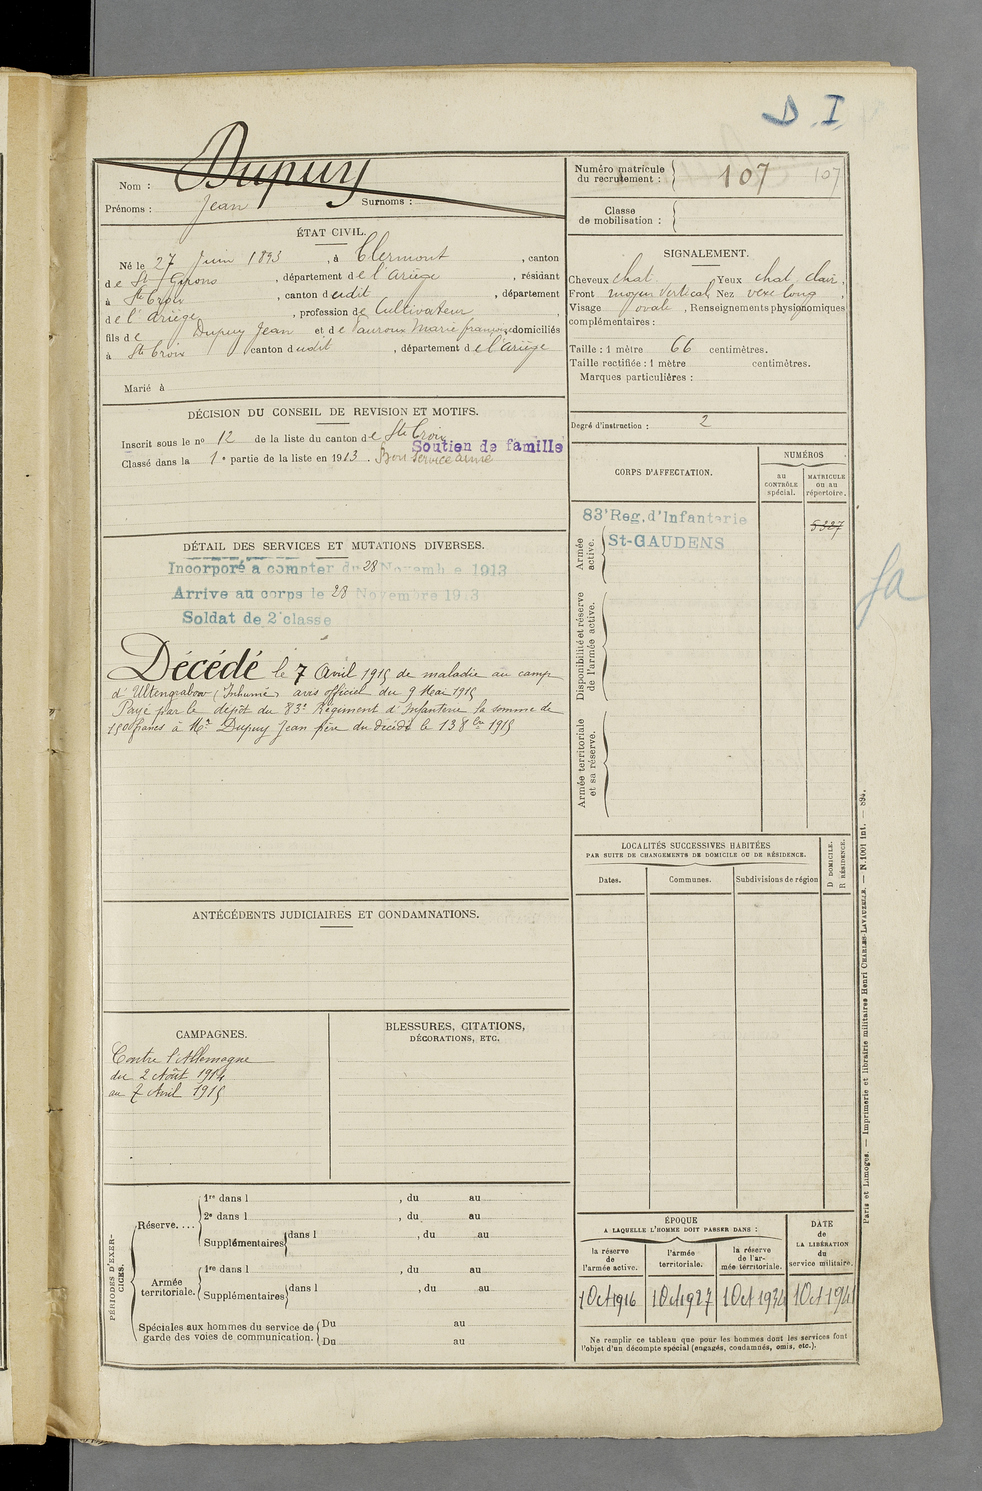 D. I.
Nom : Dupuy
Prénoms : Jean Surnoms :
Numéro matricule du recrutement : 107 107
Classe de mobilisation :
ÉTAT CIVIL.
Né le 27 Juin 1893, à Clermont, canton
de St Girons, département de l'Ariège, résidant
à Ste Croix, canton dudit, département
de l'Ariège, profession de Cultivateur,
fils de Dupuy Jean et de Marie domiciliés
à Ste Croix canton dudit, département de l'Ariège
Marié à
SIGNALEMENT.
Cheveux chat. Yeux chat. clair,
Front moyen Vertical, Nez vexe long,
Visage ovale, Renseignements physionomiques
complémentaires :
Taille : 1 mètre 66 centimètres.
Taille rectifiée : 1 mètre centimètres.
Marques particulières :
Degré d'instruction : 2
DÉCISION DU CONSEIL DE REVISION ET MOTIFS.
Inscrit sous le no 12 de la liste du canton de Ste Croix
Soutien de famille
Classé dans la 1e partie de la liste en 1913. Bon service armé
DÉTAIL DES SERVICES ET MUTATIONS DIVERSES.
Incorporé à compter du 28 Novembre 1913
Arrivé au corps le 28 Novembre 1913
Soldat de 2e classe
Décédé le 7 Avril 1915 de maladie au camp
d'Altengrabow (Inhumé) avis officiel du 9 Mai 1915
Payé par le dépôt du 83e Régiment d'Infanterie la somme de
150 francs à Mr Dupuy Jean père du décédé le 13 8bre 1915
CORPS D'AFFECTATION.
NUMÉROS
au CONTRÔLE spécial.
MATRICULE ou au répertoire.
83e Reg. d'Infanterie
St-GAUDENS
5327
Armée active.
Disponibilité et réserve de l'armée active.
Armée territoriale et sa réserve.
LOCALITÉS SUCCESSIVES HABITÉES
PAR SUITE DE CHANGEMENTS DE DOMICILE OU DE RÉSIDENCE.
Dates.
Communes.
Subdivisions de région
D DOMICILE.
R RÉSIDENCE.
ANTÉCÉDENTS JUDICIAIRES ET CONDAMNATIONS.
CAMPAGNES.
Contre l'Allemagne
du 2 Août 1914
au 7 Avril 1915
BLESSURES, CITATIONS,
DÉCORATIONS, ETC.
PÉRIODES D'EXERCICES.
Réserve....
1re dans l , du au
2e dans l , du au
Supplémentaires dans l , du au
Armée territoriale.
1re dans l , du au
Supplémentaires dans l , du au
Spéciales aux hommes du service de garde des voies de communication.
Du au
Du au
ÉPOQUE
A LAQUELLE L'HOMME DOIT PASSER DANS :
la réserve de l'armée active.
l'armée territoriale.
la réserve de l'armée territoriale.
DATE de LA LIBÉRATION du service militaire.
1 Oct 1916
1 Oct 1927
1 Oct 1934
1 Oct 1941
Ne remplir ce tableau que pour les hommes dont les services font
l'objet d'un décompte spécial (engagés, condamnés, omis, etc.).
Paris et Limoges. — Imprimerie et librairie militaires Henri CHARLES-LAVAUZELLE. — N. 1001 int. — 894.